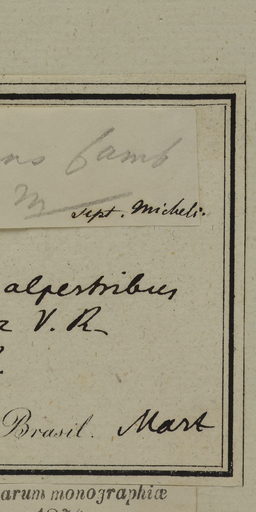 Camb
M
sept. Micheli.
alpestribus
V. R
Brasil. Mart
arum monographiæ